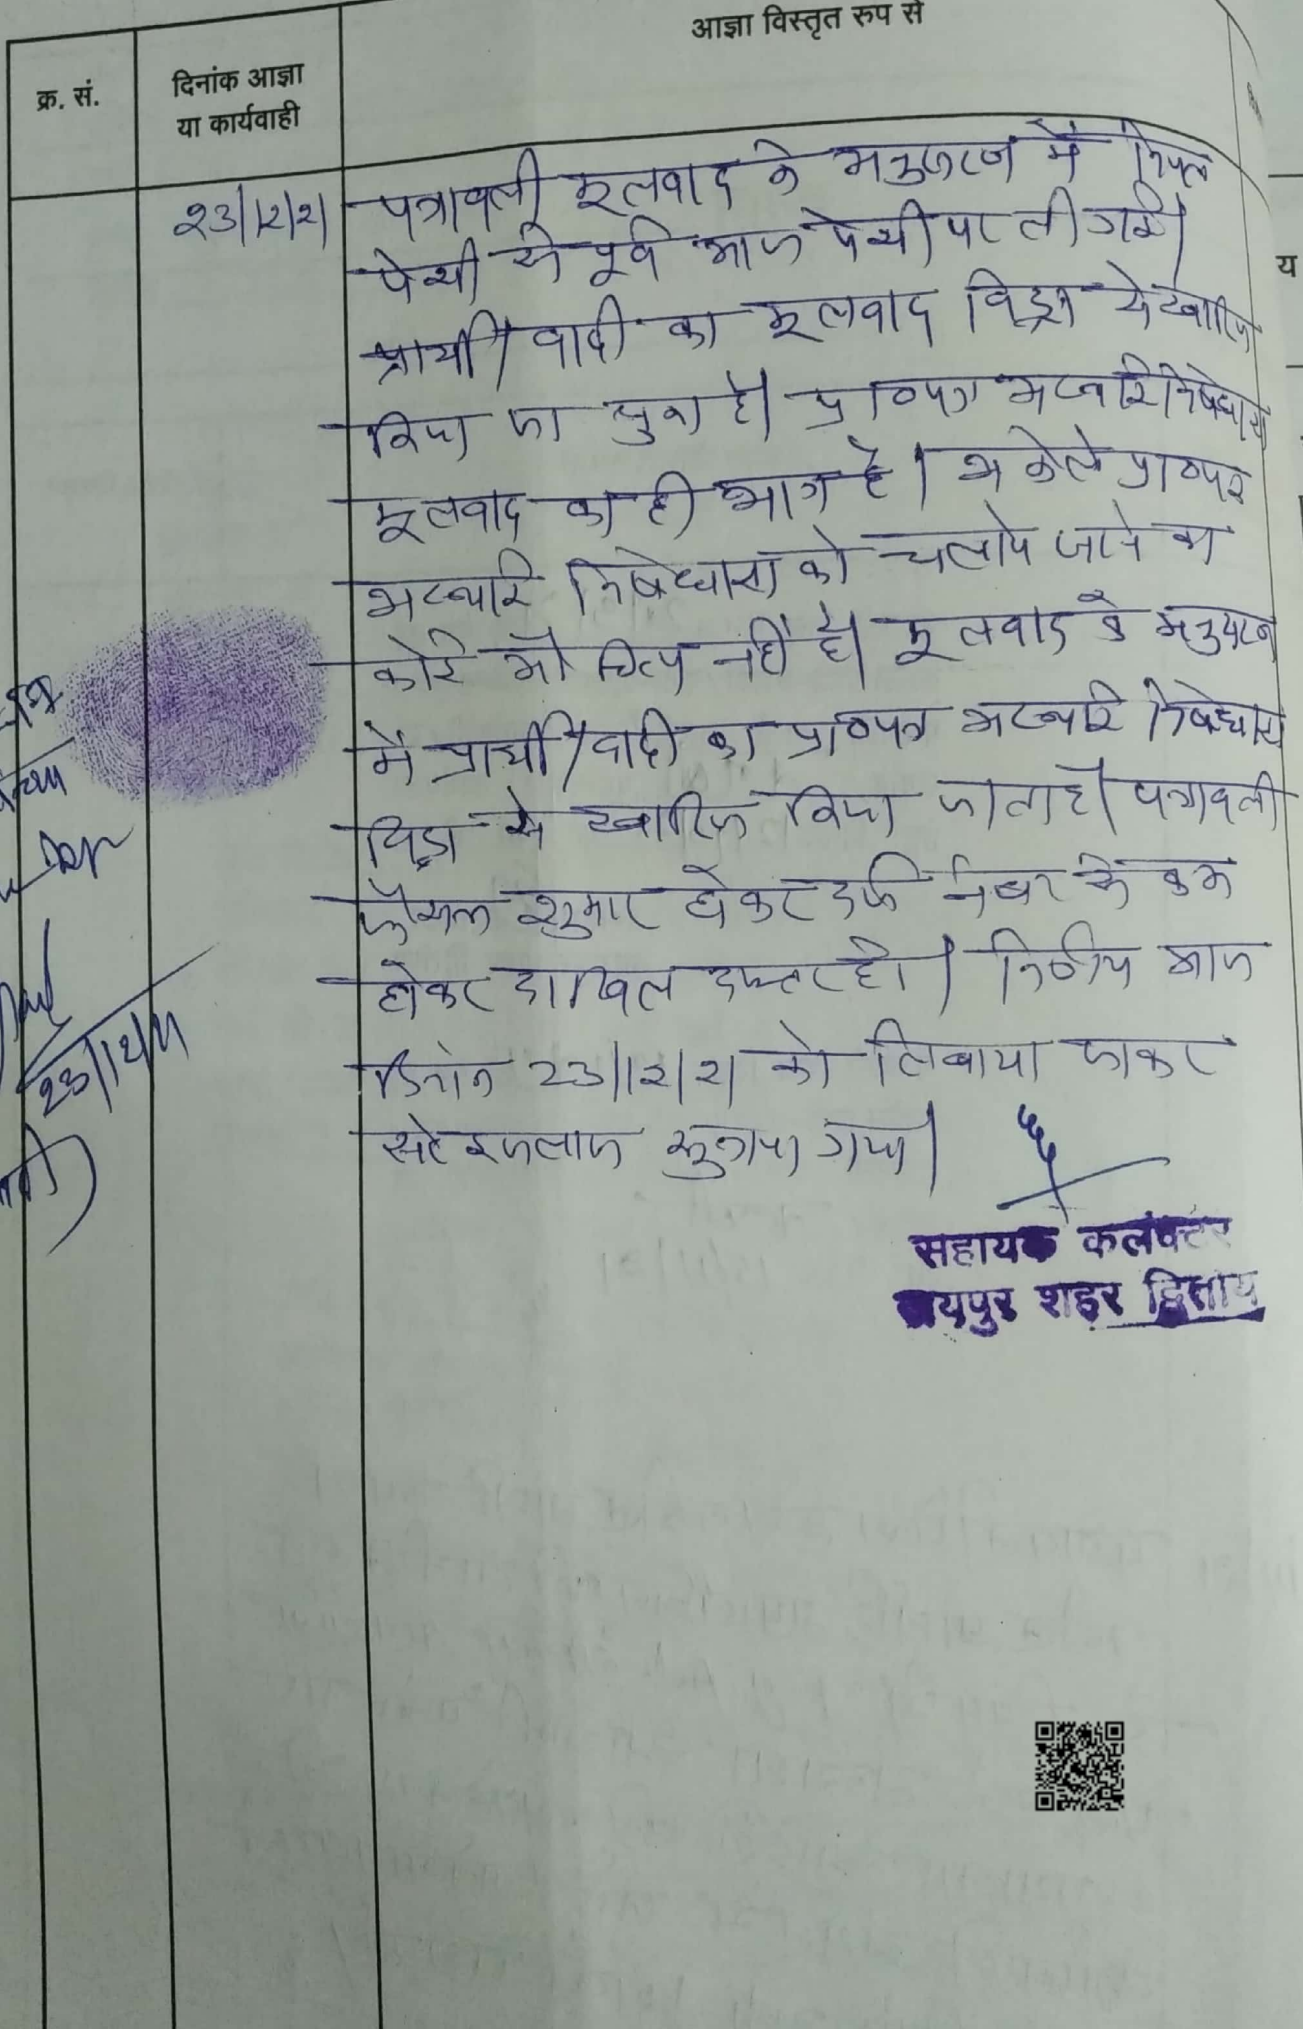 आज्ञा विस्तृत रुप से
क्र. सं.
दिनांक आज्ञा
या कार्यवाही
23/12/21
पत्रावली मूलवाद के अनुसरण में नियत
पेशी से पूर्व आज पेशी पर ली गई।
प्रार्थी/वादी का मूलवाद विड्रा से खारिज
किया जा चुका है। प्रा०पत्र अस्थाई निषेधाज्ञा
मूलवाद का ही भाग है। अकेले प्रा०पत्र
अस्थाई निषेधाज्ञा को चलाये जाने का
कोई औचित्य नहीं है। मूलवाद के अनुसरण
में प्रार्थी/वादी का प्रा०पत्र अस्थाई निषेधाज्ञा
विड्रा से खारिज किया जाता है। पत्रावली
फैसल शुमार होकर दर्ज नंबर से कम
होकर दाखिल दफ्तर हो। निर्णय आज
दिनांक 23/12/21 को लिखाया जाकर
सरे इजलास सुनाया गया।
23/12/21
सहायक कलक्टर
जयपुर शहर द्वितीय
य